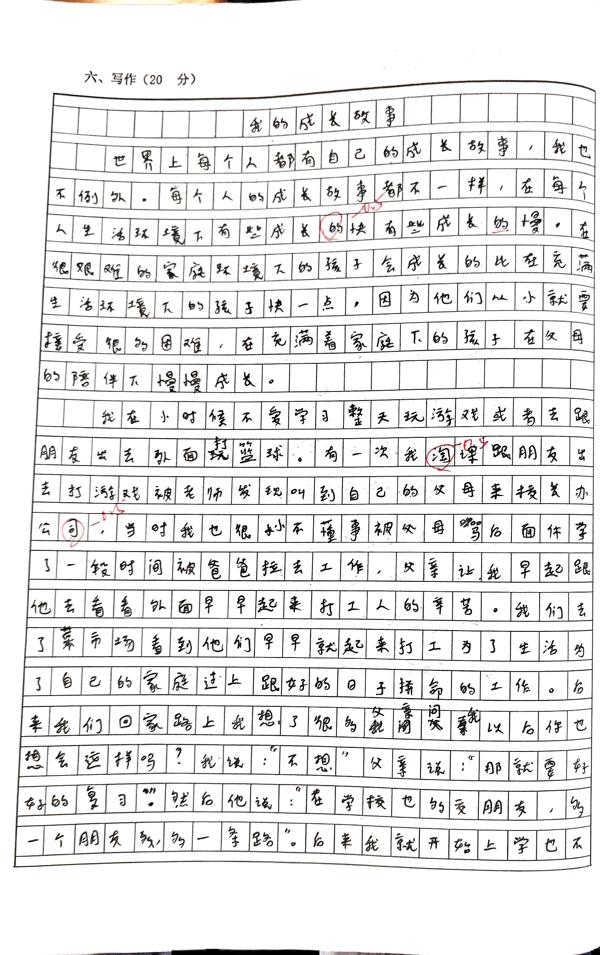 六、写作(20 分)
我的成长故事
世界上每个人都有自己的成长故事，我也
不例外。每个人的成长故事都不一样，在每个
人生活环境下有些成长的快有些成长的慢。在
很艰难的家庭环境下的孩子会成长的比在充满
生活环境下的孩子快一点。因为他们从小就要
接受很多困难，在充满着家庭下的孩子在父母
的陪伴下慢慢成长。
我在小时候不爱学习整天玩游戏或者去跟
朋友出去外面打篮球。有一次我淘课跟朋友出
去打游戏被老师发现叫到自己的父母来接去办
公司，当时我也很小不懂事被父母骂后面休学
了一段时间被爸爸拉去工作，父亲让我早起跟
他去看看外面早早起来打工人的辛苦。我们去
了菜市场看到他们早早就起来打工为了生活为
了自己的家庭过上跟好的日子拼命的工作。后
来我们回家路上我想了很多父亲问我以后你也
想会这样吗？我说：“不想”父亲说：“那就要好
好的复习”。然后他说：“在学校也多交朋友，多
一个朋友多，多一条路”。后来我就开始上学也不
-0.5
-0.5
-0.5